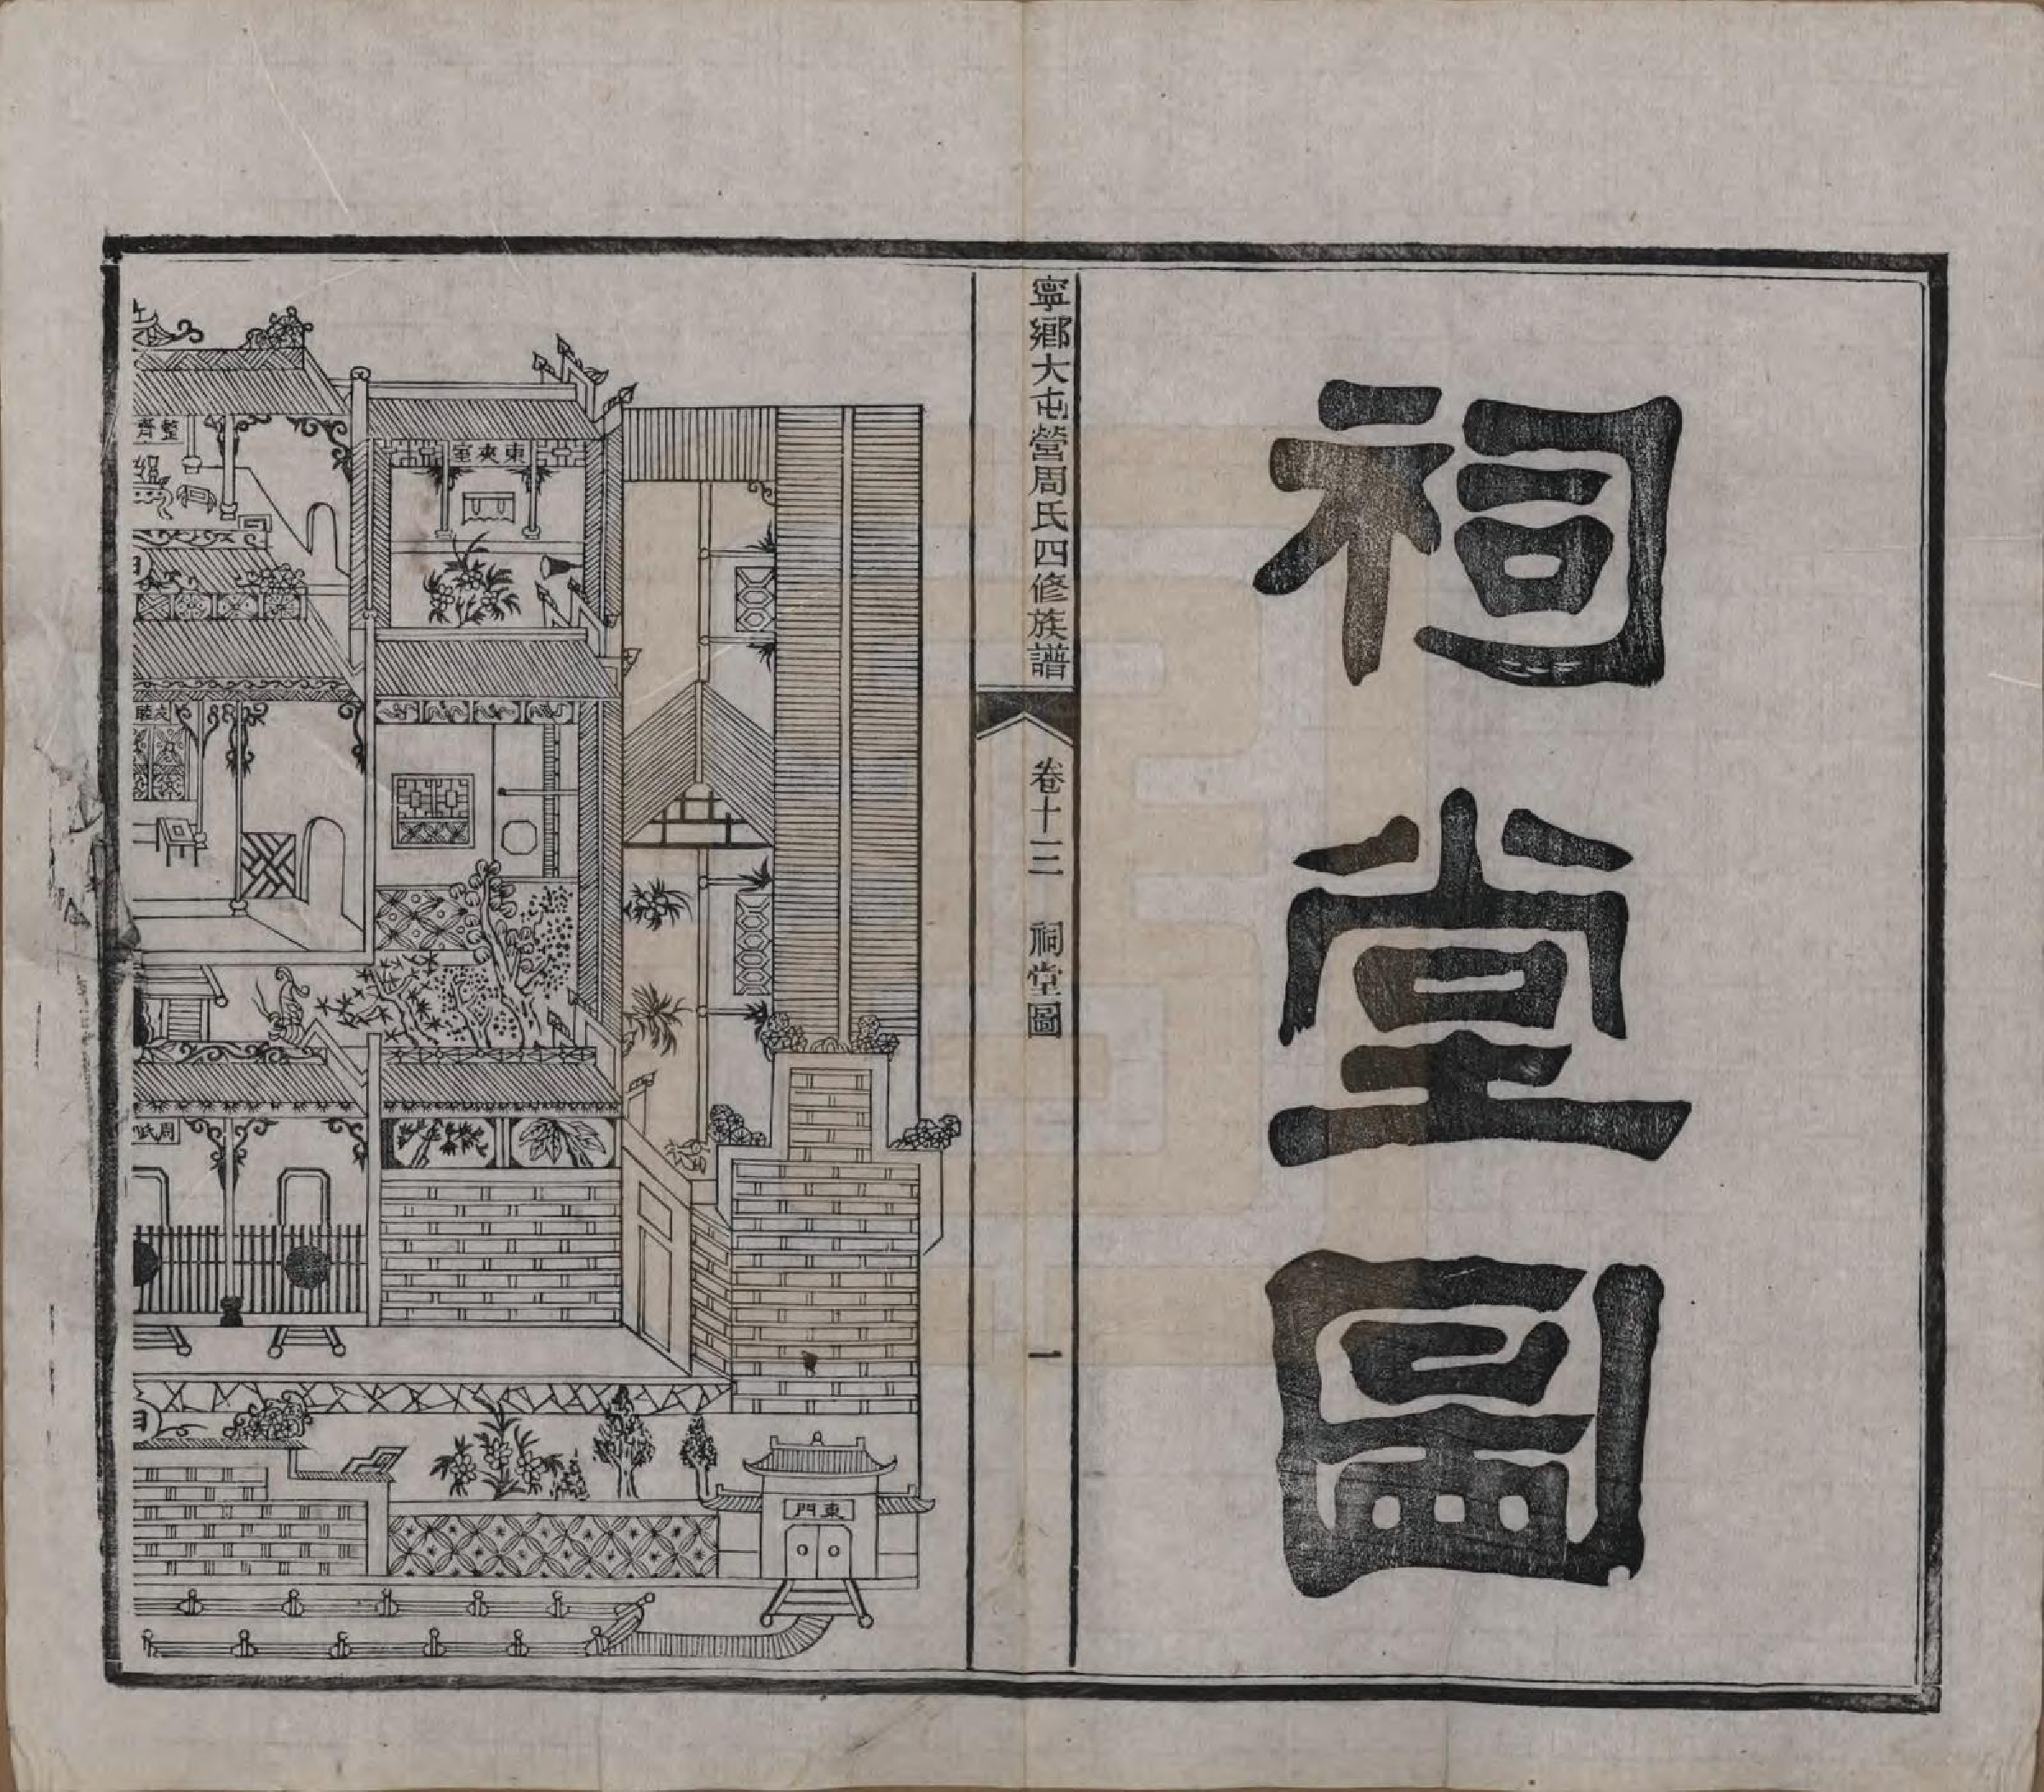 祠堂圖
寧鄉大屯營周氏四修族譜
卷十三 祠堂圖
一
東夾室
整齊
周氏
東門